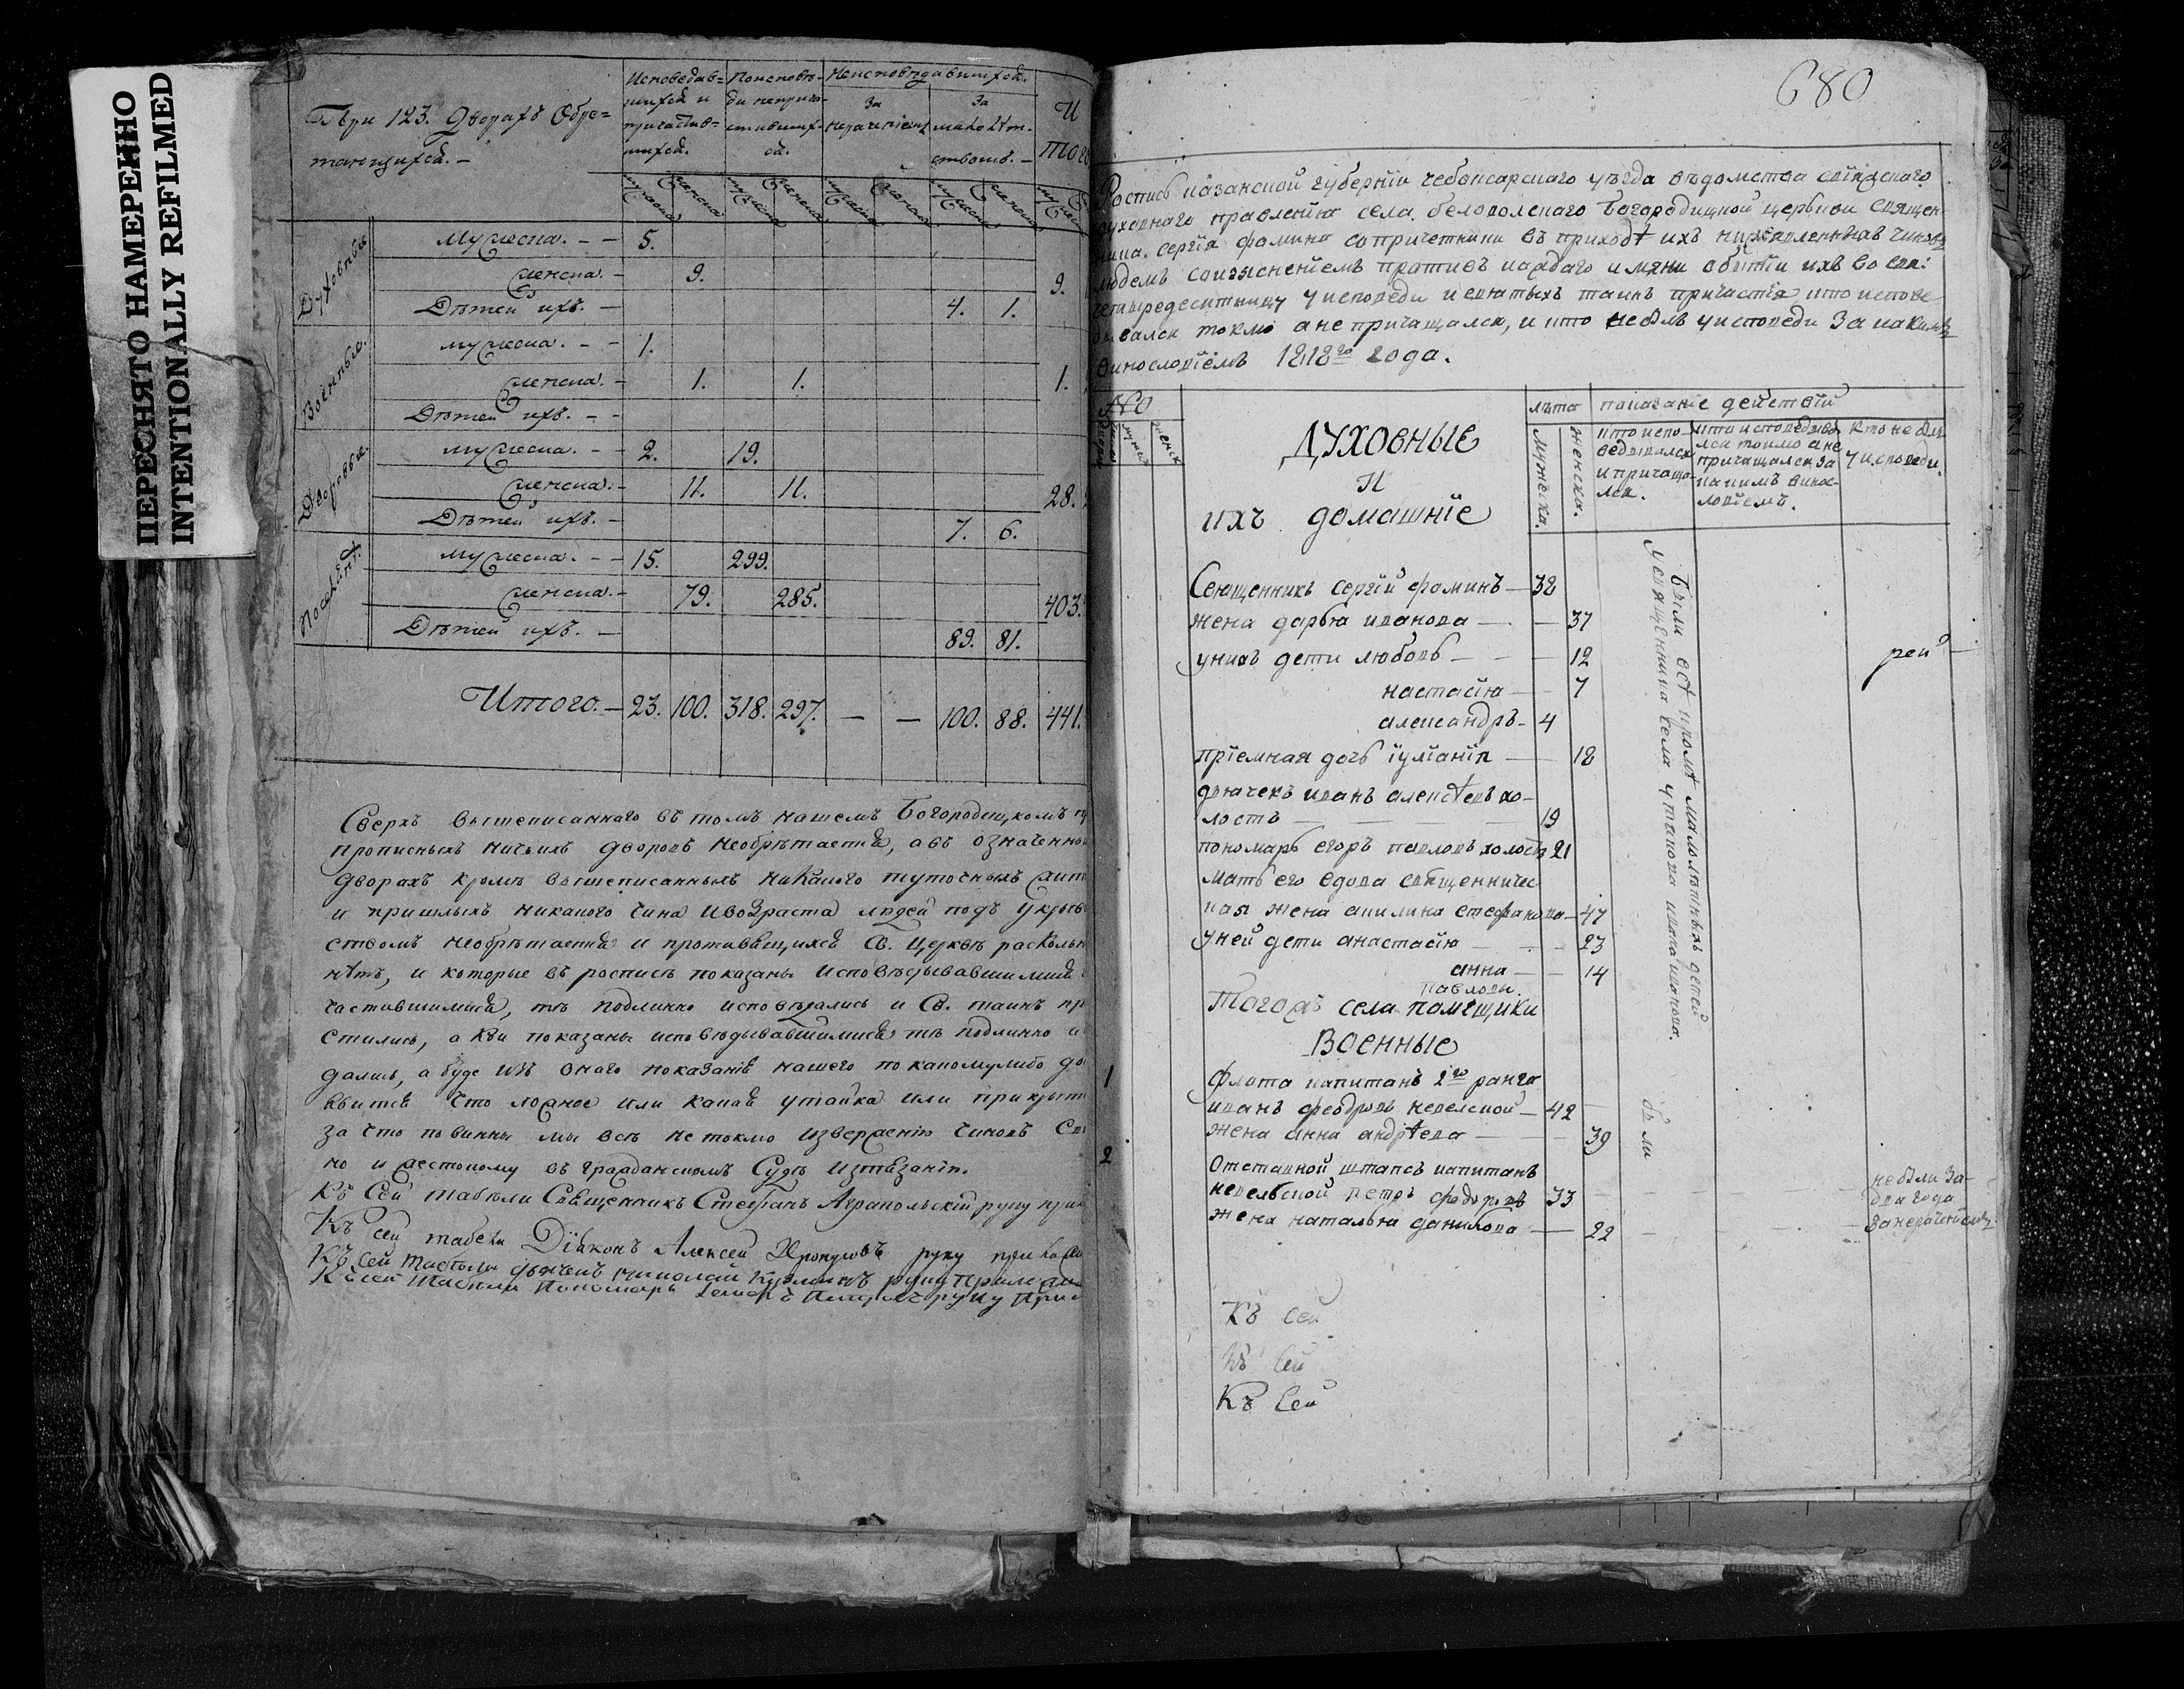 ПЕРЕСНЯТО НАМЕРЕННО
INTENTIONALLY REFILMED
При 123. дворахъ Обре=
тающихся. –
Исповедав=
шихся и
причастив=
шихся.
Поисповѣ-
ди неприча-
стивших-
ся.
Неисповѣдавшихся.
За
нерачениемъ
За
малолѣт-
ствомъ. –
И
того
мужеска женска мужеска женска мужеска женска мужеска женска
Духовныя
Мужеска. – – 5.
женска. – 9. 9.
Дѣтей ихъ. – 4. 1.
Военныя.
мужеска. – – 1.
женска. – 1. 1. 1.
Дѣтей ихъ. – –
Дворовыя.
мужеска. – – 2. 19.
женска. – 11. 11. 28.
Дѣтей ихъ. – 7. 6.
Поселян.
мужеска. – – 15. 299.
женска. – 79. 285. 403.
Дѣтей ихъ. – 89. 81.
Итого. – 23. 100. 318. 297. – – 100. 88. 441.
Сверхъ вышеписаннаго въ томъ нашемъ Богородицкомъ
прописныхъ ничьихъ дворовъ необрѣтается, а въ означенно
дворахъ кромѣ вышеписанныхъ никакого туточныхъ жит
и пришлыхъ никакого чина и возраста людей подъ укрыв
ствомъ необрѣтается и противящихся Св. Церкве раскольн
нѣтъ, и которые въ росписѣ показаны исповѣдывавшимися
частившимися, тѣ подлинно исповѣдались и Св. таинъ пр
стились, а кои показаны исповѣдывавшимися тѣ подлинно и
дались, а буде изъ онаго показанiя нашего по какомулибо до
явится что ложное или какая утайка или прикрыт
за что повинны мы всѣ нетокмо извержению чиновъ Св
но и жестокому въ гражданскомъ Судѣ изтязанiю.
Къ Сей табели Священникъ Стефанъ Аграпольскiй руку при
Къ сей табели Дiаконъ Алексей руку приложи
Къ Сей табели дьячекъ николай руку приложи
Къ сей табели Пономарь руку при
680
Роспись казанской губернiи чебоксарскаго уѣзда вѣдомства свiяжскаго
духовнаго правленiя села беловолжскаго богородицкой церькви священ
ника сергiя фомина сопричетники въ приходѣ ихъ чиновъ
людемъ сопротивъ каждаго имяни о бытiи ихъ во свя:
четыредесятницу у исповеди и святыхъ таинъ причастiя, кто испове
дывался токмо а не причащался, и кто не былъ у исповеди за какимъ
винословiемъ 1812го года.
No
ДУХОВНЫЕ
И
ихъ домашнiе
лѣта
мужеска.
женска.
показанiе действiи
кто испо-
ведывался
и причаща-
лся.
кто исповедывал
лся токмо а не
причащался за
какимъ винос-
ловiемъ.
кто не был
у исповеди.
Священникъ сергiй фоминъ – 32
жена дарья иванова – 37
у нихъ дети любовь – – – 12
настасiя – – 7
александръ – 4
прiемная дочь iулiанiя – 18
дьячекъ иванъ алексѣевъ хо-
лостъ – – – 19
пономарь егоръ павловъ холостъ 21
мать его вдова священничес
кая жена акилина стефанова – 47
у ней дети анастасiя – – 23
анна – – 14
павловы.
были всѣ кромѣ малолѣтныхъ детей
у священника села ивана иванова.
рей –
Тогожъ села помещики
Военные
1 флота капитанъ 2го ранга
иванъ феодровъ невелской – 42
жена анна андрѣева – – – 39
были
2 Отставной штапсъ капитанъ
невельской петръ федоровъ 33
жена наталья данилова – 22
не были за-
два года
за нерачениемъ
Къ сей
Къ Сей
Къ Сей